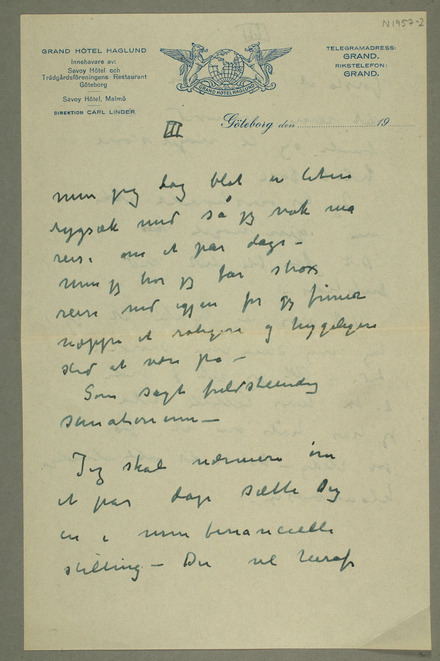 N 1957-2
GRAND HÔTEL HAGLUND
Innehavare av:
Savoy Hôtel och
Trädgårdsföreningens Restaurant
Göteborg
Savoy Hôtel, Malmö
DIREKTION CARL LINDER
GRAND HÔTEL HAGLUND
TELEGRAMADRESS:
GRAND.
RIKSTELEFON:
GRAND.
Göteborg den 19
III
men jeg tog blot en liten
rygsæk med så jeg nok må
reise om et par dage –
men jeg tror jeg tar straks
reise ned igjen for jeg finner
neppe et roligere og hyggeligere
sted at være på –
Som sagt fuldstændig
sanatorium –
Jeg skal nærmere om
et par dage sætte Dig
in i min financielle
stilling – Du vil